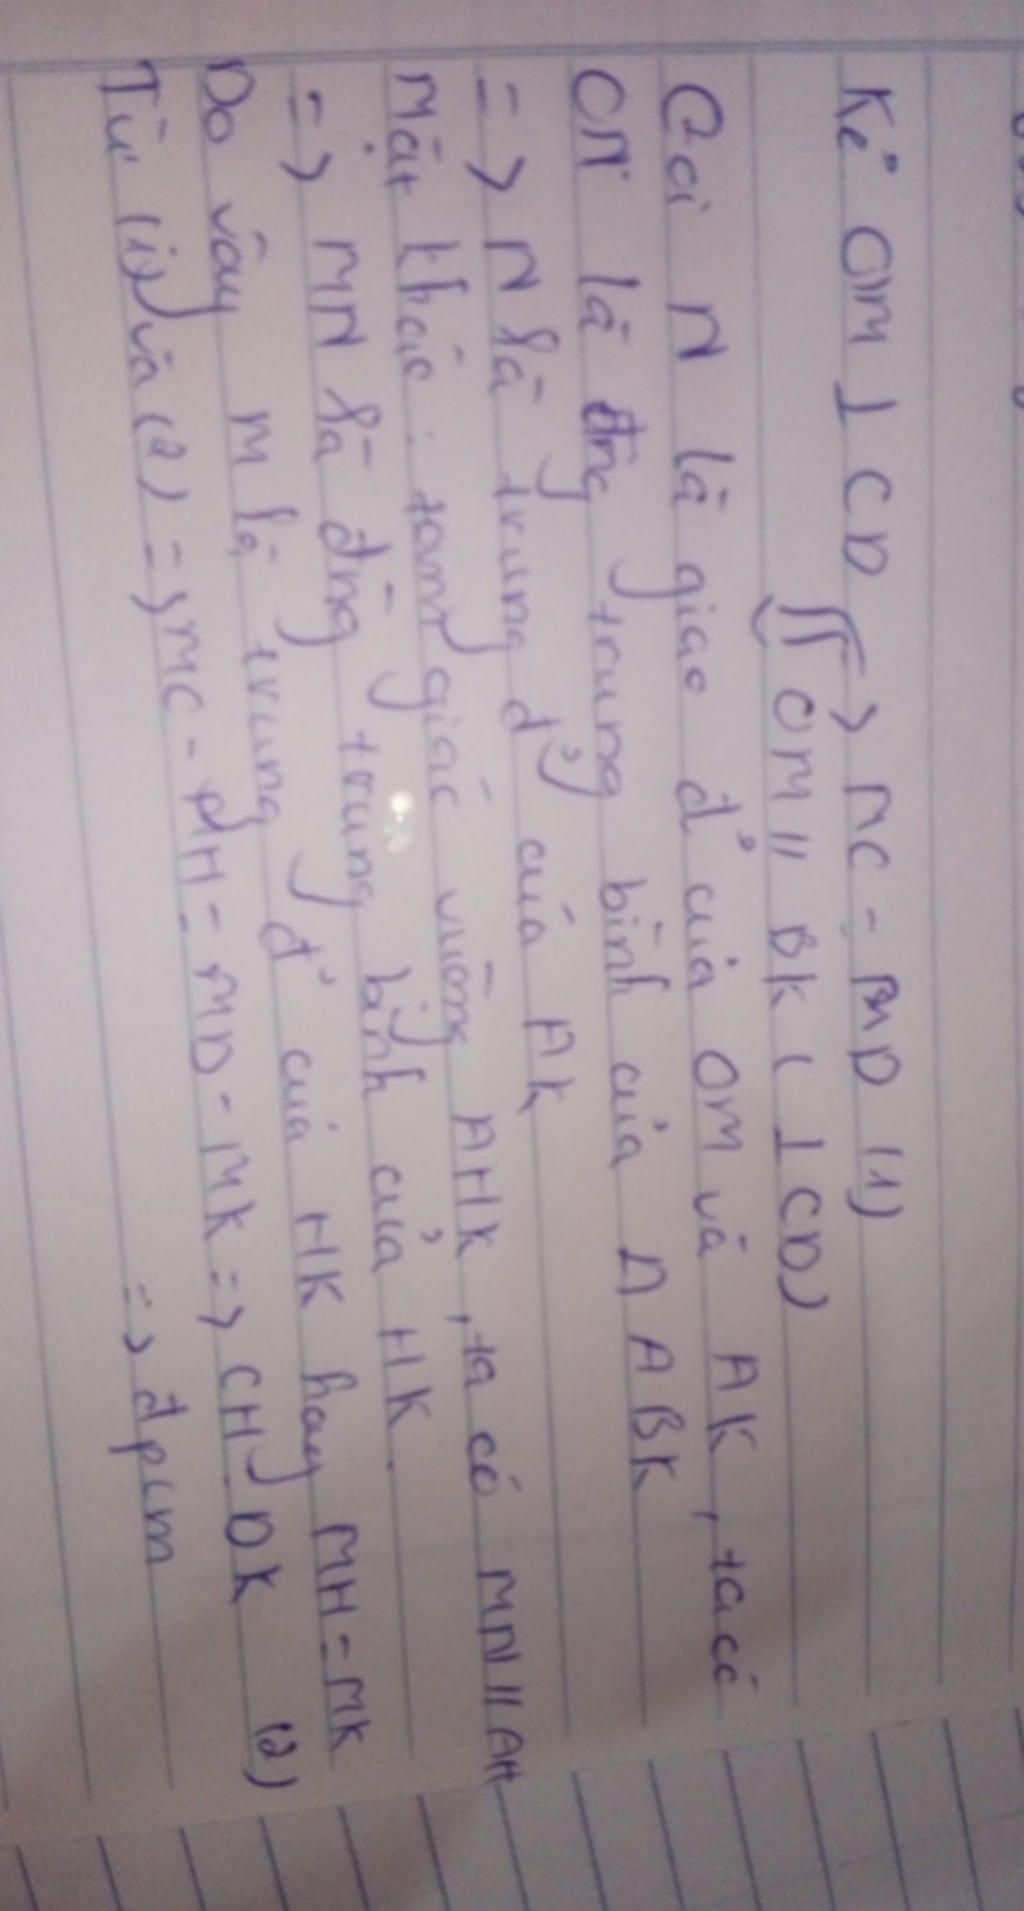 Kẻ OM ⊥ CD => MC = MD (1)
OM // BK ( ⊥ CD)
Gọi N là giao đ' của OM và AK, ta có
ON là đng trung bình của Δ ABK
=> N là trung đ' của AK
Mặt khác: tam giác vuông AHK, ta có MN // AH
=> MN là đng trung bình của HK.
Do vậy M là trung đ' của HK hay MH = MK (2)
Từ (1) và (2) => MC - MH = MD - MK => CH = DK
=> đpcm